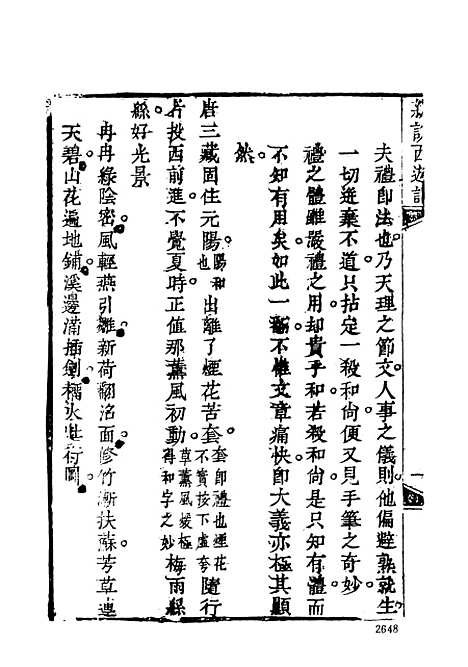 新說西遊記
夫禮卽法也乃天理之節文人事之儀則他偏避熟就生
一切迸棄不道只拈定一殺和尙便又見手筆之奇妙
禮之體雖嚴禮之用却貴乎和若殺和尙是只知有體而
不知有用矣如此一翻不惟文章痛快卽大義亦極其顯
然
唐三藏固住元陽也陽和出離了煙花苦套套卽禮也煙花不實按下虛套隨行
片投西前進不覺夏時正值那薰風初動草薰風緩極得和字之妙梅雨絲
絲好光景
冉冉綠陰密風輕燕引雛新荷翻沼面修竹漸扶蘇芳草連
天碧山花遍地鋪溪邊蒲插劍榴火壯行圖
2648